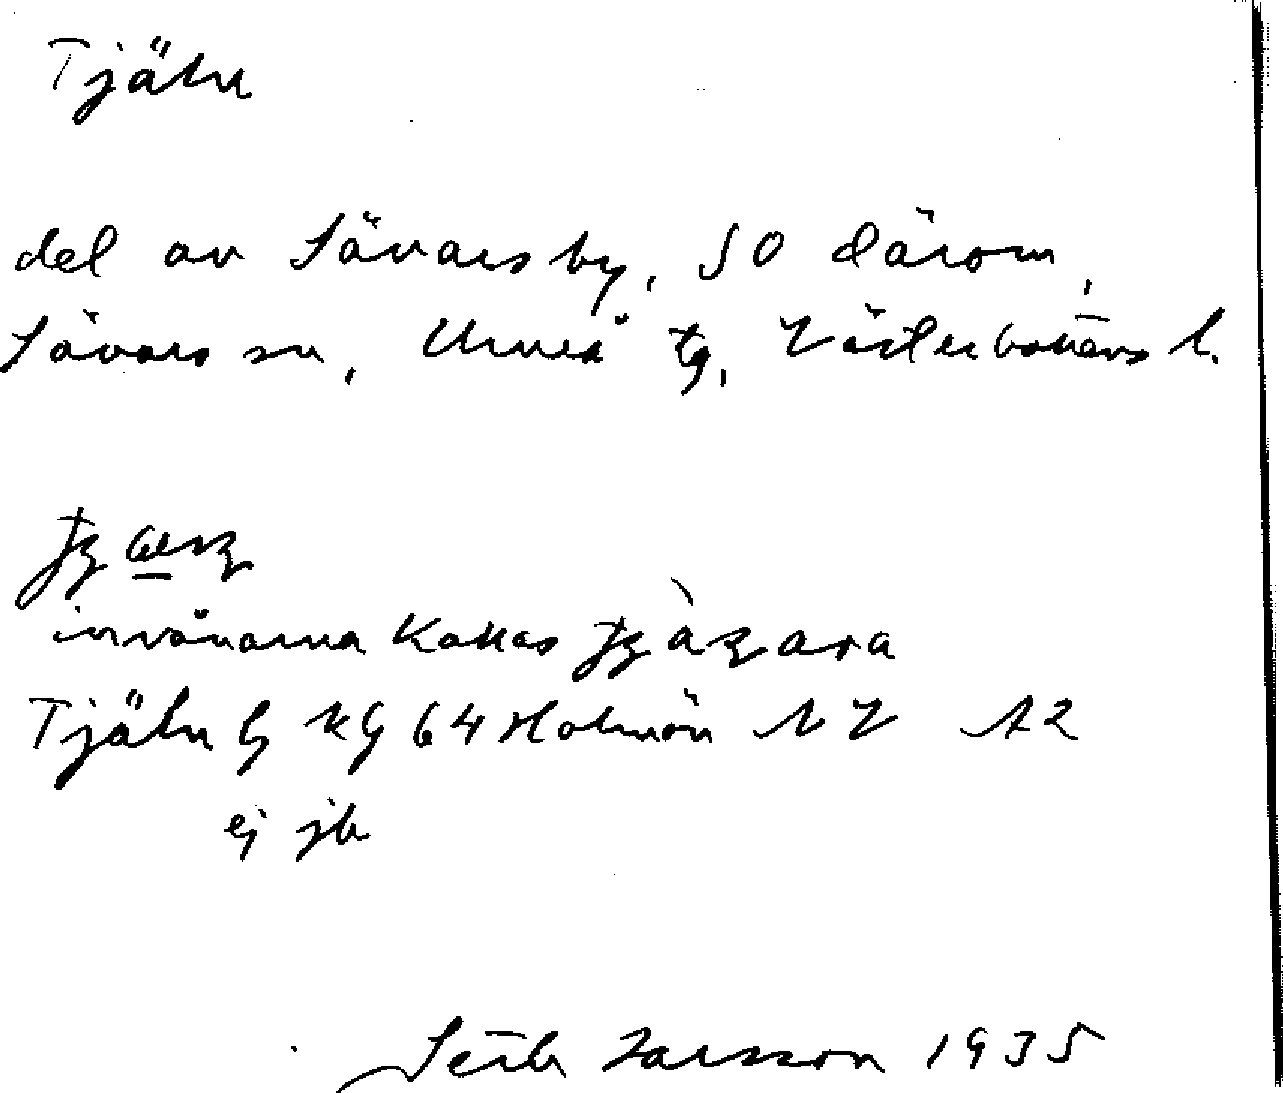 Tjäln
del av Sävars by, SO därom,
Sävars sn, Umeå tg, Västerbottens l.
invånarna kallas
Tjäln g kg 64 Holmön NV A2
ej jb
Seth Larsson 1935